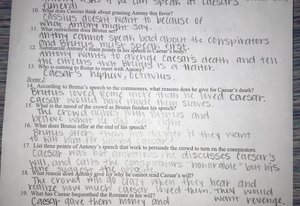 funeral
10. What does Cassius think about granting Antony this favor?
cassius doesnt want to because of
what Antony might say.
11. What restrictions does Brutus set?
Antony cannot speak bad about the conspirators
and Brutus must speech first.
12. Summarize Antony's
Antony wants to avenge Caesar's death and tell
the citizens how Brutus is a traitor.
13. Who is coming to Rome to meet with Antony?
Caesar's nephew, Octavius.
Scene 2:
14. According to Brutus's speech to the commoners, what reasons does he give for Caesar's death?
Brutus loved Rome more than he loved caesar.
caesar would have made them slaves.
15. What is the mood of the crowd as Brutus finishes his speech?
The crowd agrees with Brutus and
believe
16. What does Brutus offer at the end of his speech?
Brutus
17. List three points of Antony's speech that work to persuade the crowd to turn on the conspirators.
Caesar was not ambitious, he discusses caesar's
will, and calls the conspirators "honorable" but
18. What reason does Antony give for why he cannot read Caesar's will?
The crowd will go crazy when they hear and
realize how much caesar loved them, they would
19. What has Caesar bequeathed the Romans in his will? want revenge
Caesar gave them money and